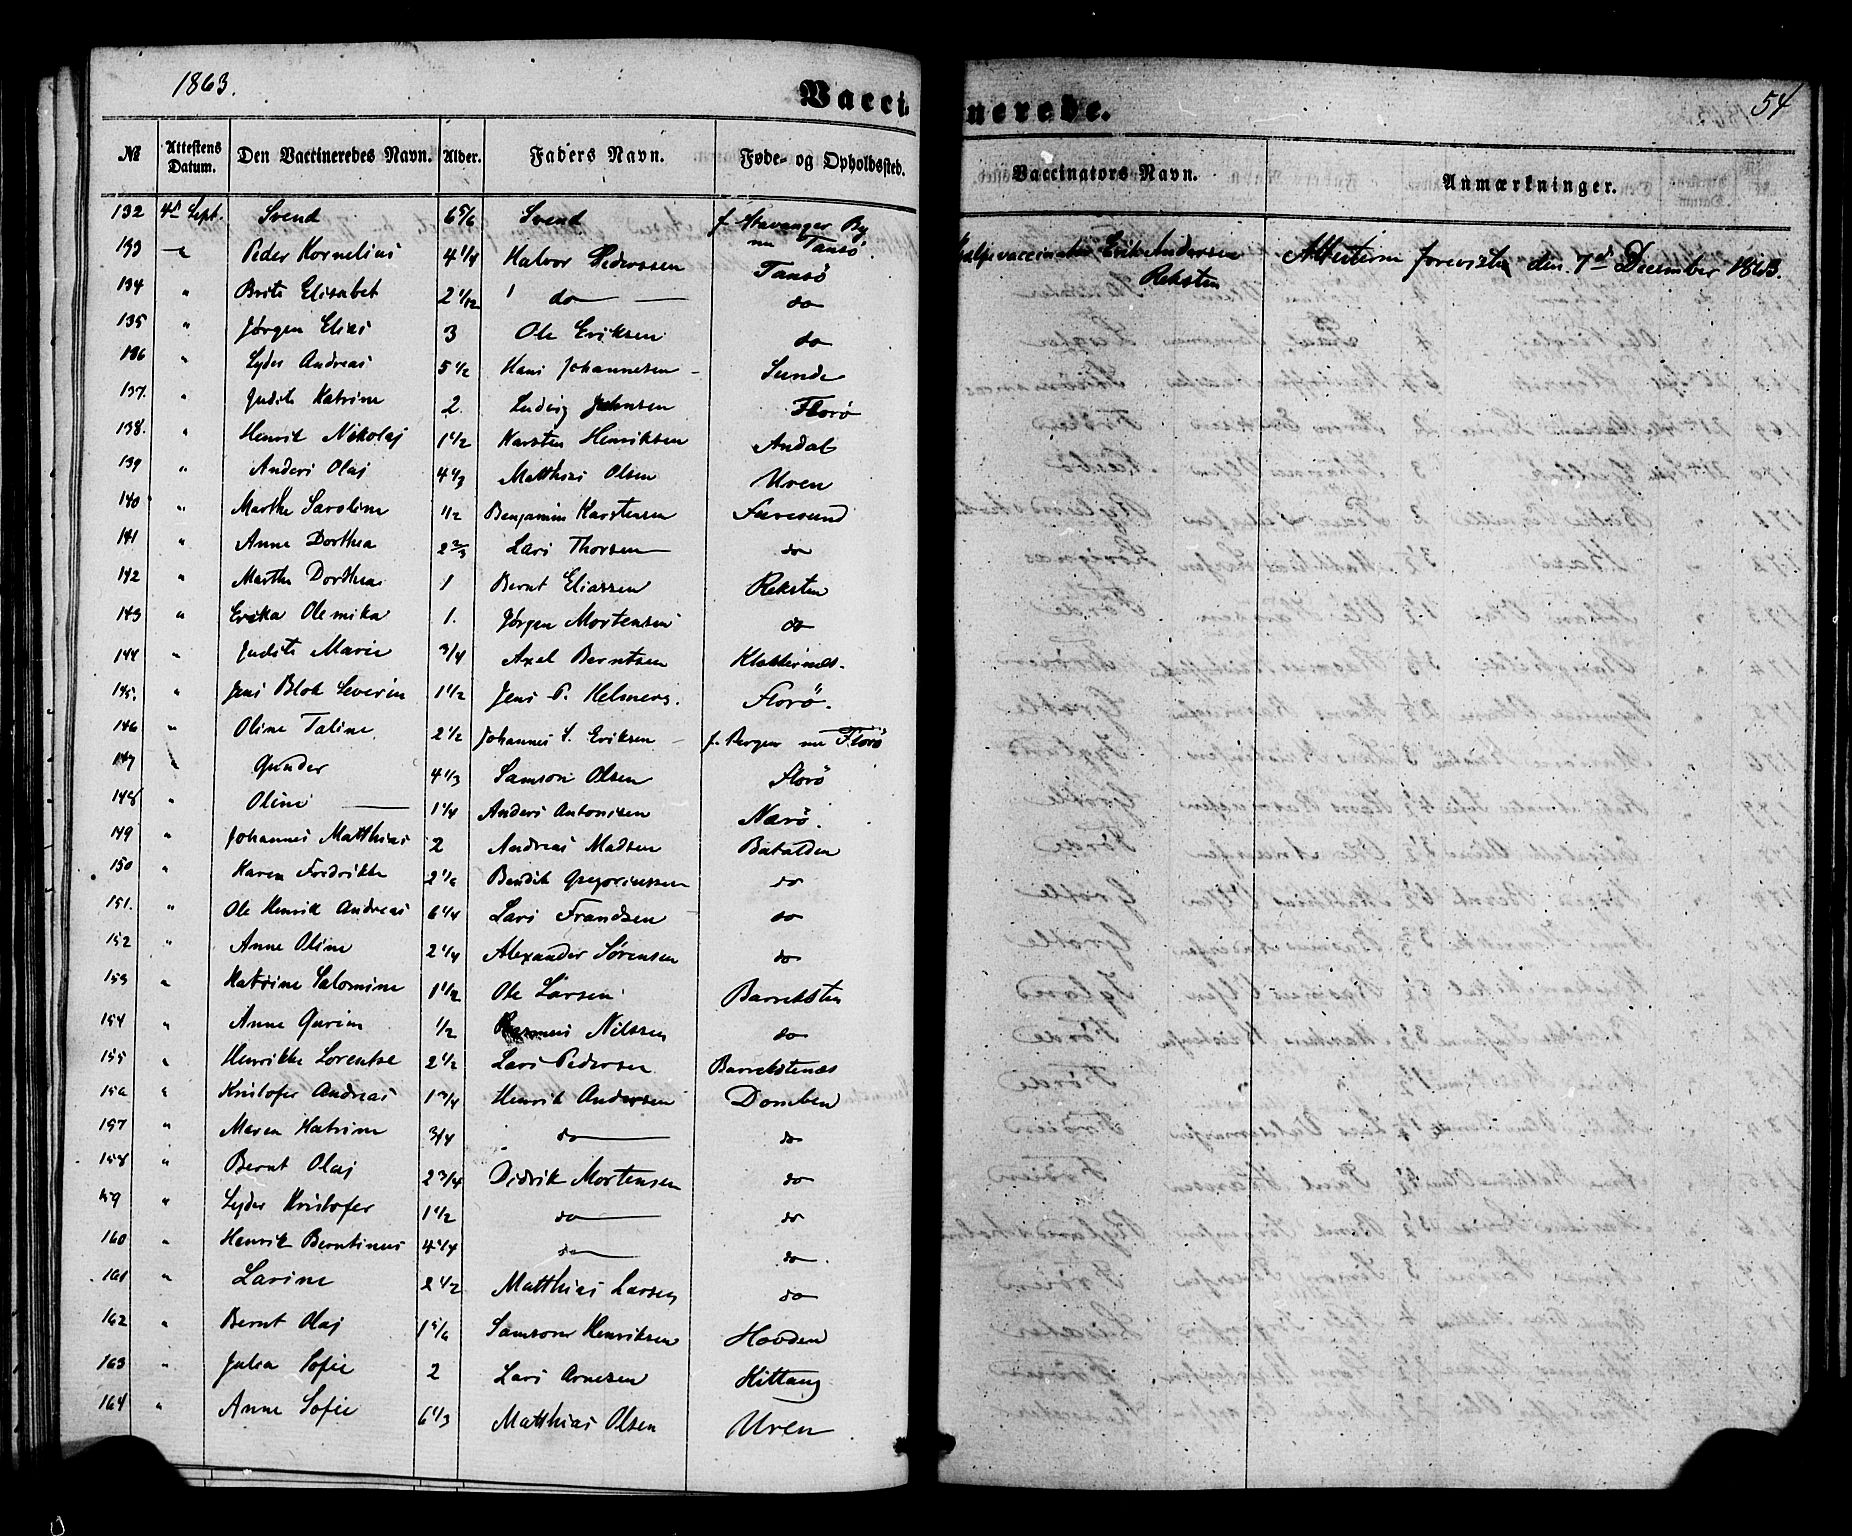 1863.
Vaccinerede.
54
№ Attestens Datum. Den Vaccineredes Navn. Alder. Faders Navn. Føde- og Opholdssted. Vaccinators Navn. Anmærkninger.
132 4d Sept. Svend 6 5/6 Svend f. Stavanger By
nu Tansö.
133 " Peder Kornelius 4 1/4 Halvor Pederssen Tansö Erik Anderssen Attesterne foreviste den 7d December 1863.
Reksten
134 " Brite Elisabet 2 1/12 do do
135 " Jørgen Elias 3 Ole Eriksen do
136 " Lyder Andreas 5 1/2 Hans Johannesen Sunde
137. " Judith Katrine 2. Ludvig Johnsen Florö
138. " Henrik Nikolaj 1 1/2 Karsten Henriksen Andal
139 " Anders Olaj 4 1/3 Matthias Olsen Uren
140 " Marthe Caroline 1/2 Benjamin Karstensen Furesund
141 " Anne Dorthea 2 2/3 Lars Thorsen do
142 " Marthe Dorthea 1 Bernt Eliassen Reksten
143 " Erika Olemika 1. Jørgen Mortensen do
144 " Judite Marie 3/4 Axel Berntsen
145. " Jens Blok Severin 1 1/2 Jens P. Helmers. Florö.
146 " Oline Taline 2 1/2 Johannes S. Eriksen f. Bergen nu Florö
147 " Gunder 4 1/3 Samson Olsen Florö
148 " Oline 1 1/4 Anders Antonisen Nærö.
149 " Johannes Matthias 2 Andreas Madsen Batalden
150 " Karen Fredrikke 2 1/6 Bendik Gregoriussen do
151. " Ole Henrik Andreas 6 1/4 Lars Frandsen do
152 " Anne Oline 2 1/4 Alexander Sørensen do
153 " Katrine Salomine 1 1/2 Ole Larsen Barreksten
154 " Anne Gurine 1/2 Rasmus Nilssen do
155 " Henrikke Lorentse 2 1/2 Lars Pedersen Barrekstenæs
156 " Kristofer Andreas 1 3/4 Henrik Andersen Domben
157 " Maren Katrine 3/4 do do
158 " Bernt Olaj 2 3/4 Didrik Mortensen do
159 " Lyder Kristofer 1 1/2 do do
160 " Henrik Berntinus 4 1/4 do do.
161 " Larine 2 1/2 Matthias Larsen do
162 " Bernt Olaj 1 5/6 Samson Henriksen Hovden
163 " Julia Sofie 2 Lars Arnesen Kittang
164 " Anne Sofie 6 1/3 Matthias Olsen Uren